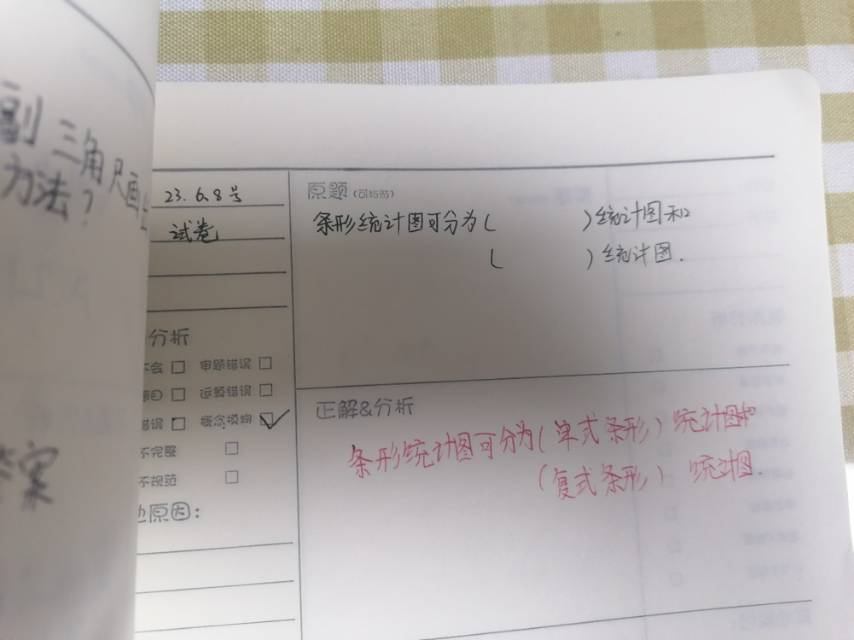 副三角尺画
方法？
答案
23.6.8号
试卷
分析
不会 □ 审题错误 □
题目 □ 运算错误 □
错误 □ 概念模糊 ☑
不完整 □
不规范 □
原因：
原题（可粘贴）
条形统计图可分为（ ）统计图和
（ ）统计图.
正解&分析
条形统计图可分为（单式条形）统计图和
（复式条形）统计图.